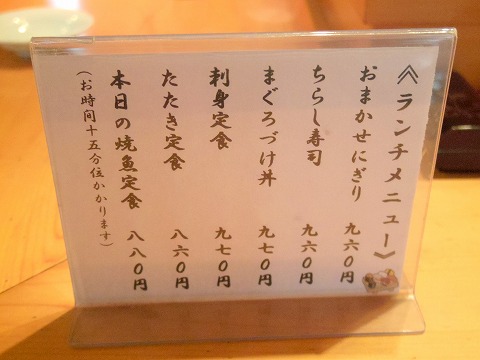 ≪ランチメニュー≫
おまかせにぎり 九六0円
ちらし寿司 九六0円
まぐろづけ丼 九七0円
刺身定食 九七0円
たたき定食 八六0円
本日の焼魚定食 八八0円
(お時間十五分位かかります)